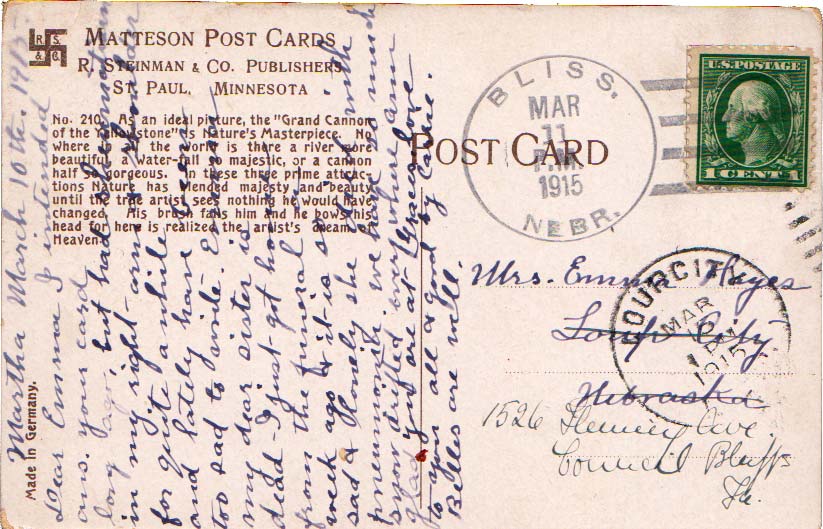 R. S. & Co.
MATTESON POST CARDS
R. STEINMAN & CO. PUBLISHERS
ST. PAUL, MINNESOTA
No. 210. As an ideal picture, the "Grand Cannon
of the Yellowstone" is Nature's Masterpiece. No
where in the world is there a river more
beautiful, a water-fall so majestic, or a cannon
half so gorgeous. In these three prime attrac-
tions Nature has blended majesty and beauty
until the true artist sees nothing he would have
changed. His brush falls him and he bows his
head for here is realized the artist's dream of
Heaven.
Made in Germany.
POST CARD
BLISS.
MAR
11
P.M.
1915
NEBR.
U.S. POSTAGE
1 CENT 1
Mrs. Emma Hayes
Loup City
Nebraska
LOUP CITY
MAR
12
1 PM
1915
1526 Fleming Ave
Council Bluffs
Ia.
Martha March 10th. 1915
Dear Emma I intended
ans. your card
long ago, but had rheumatism
in my right arm & shoulder
for quite a while
and lately have been
too sad to write. Emma
my dear sister is
dead - I just got home
from the funeral a
week ago & it is so
sad & lonely she died with
pneumonia we have so much
snow drifted everywhere am
glad you are at Graces love
to you all & good by Carrie.
Belles are well.